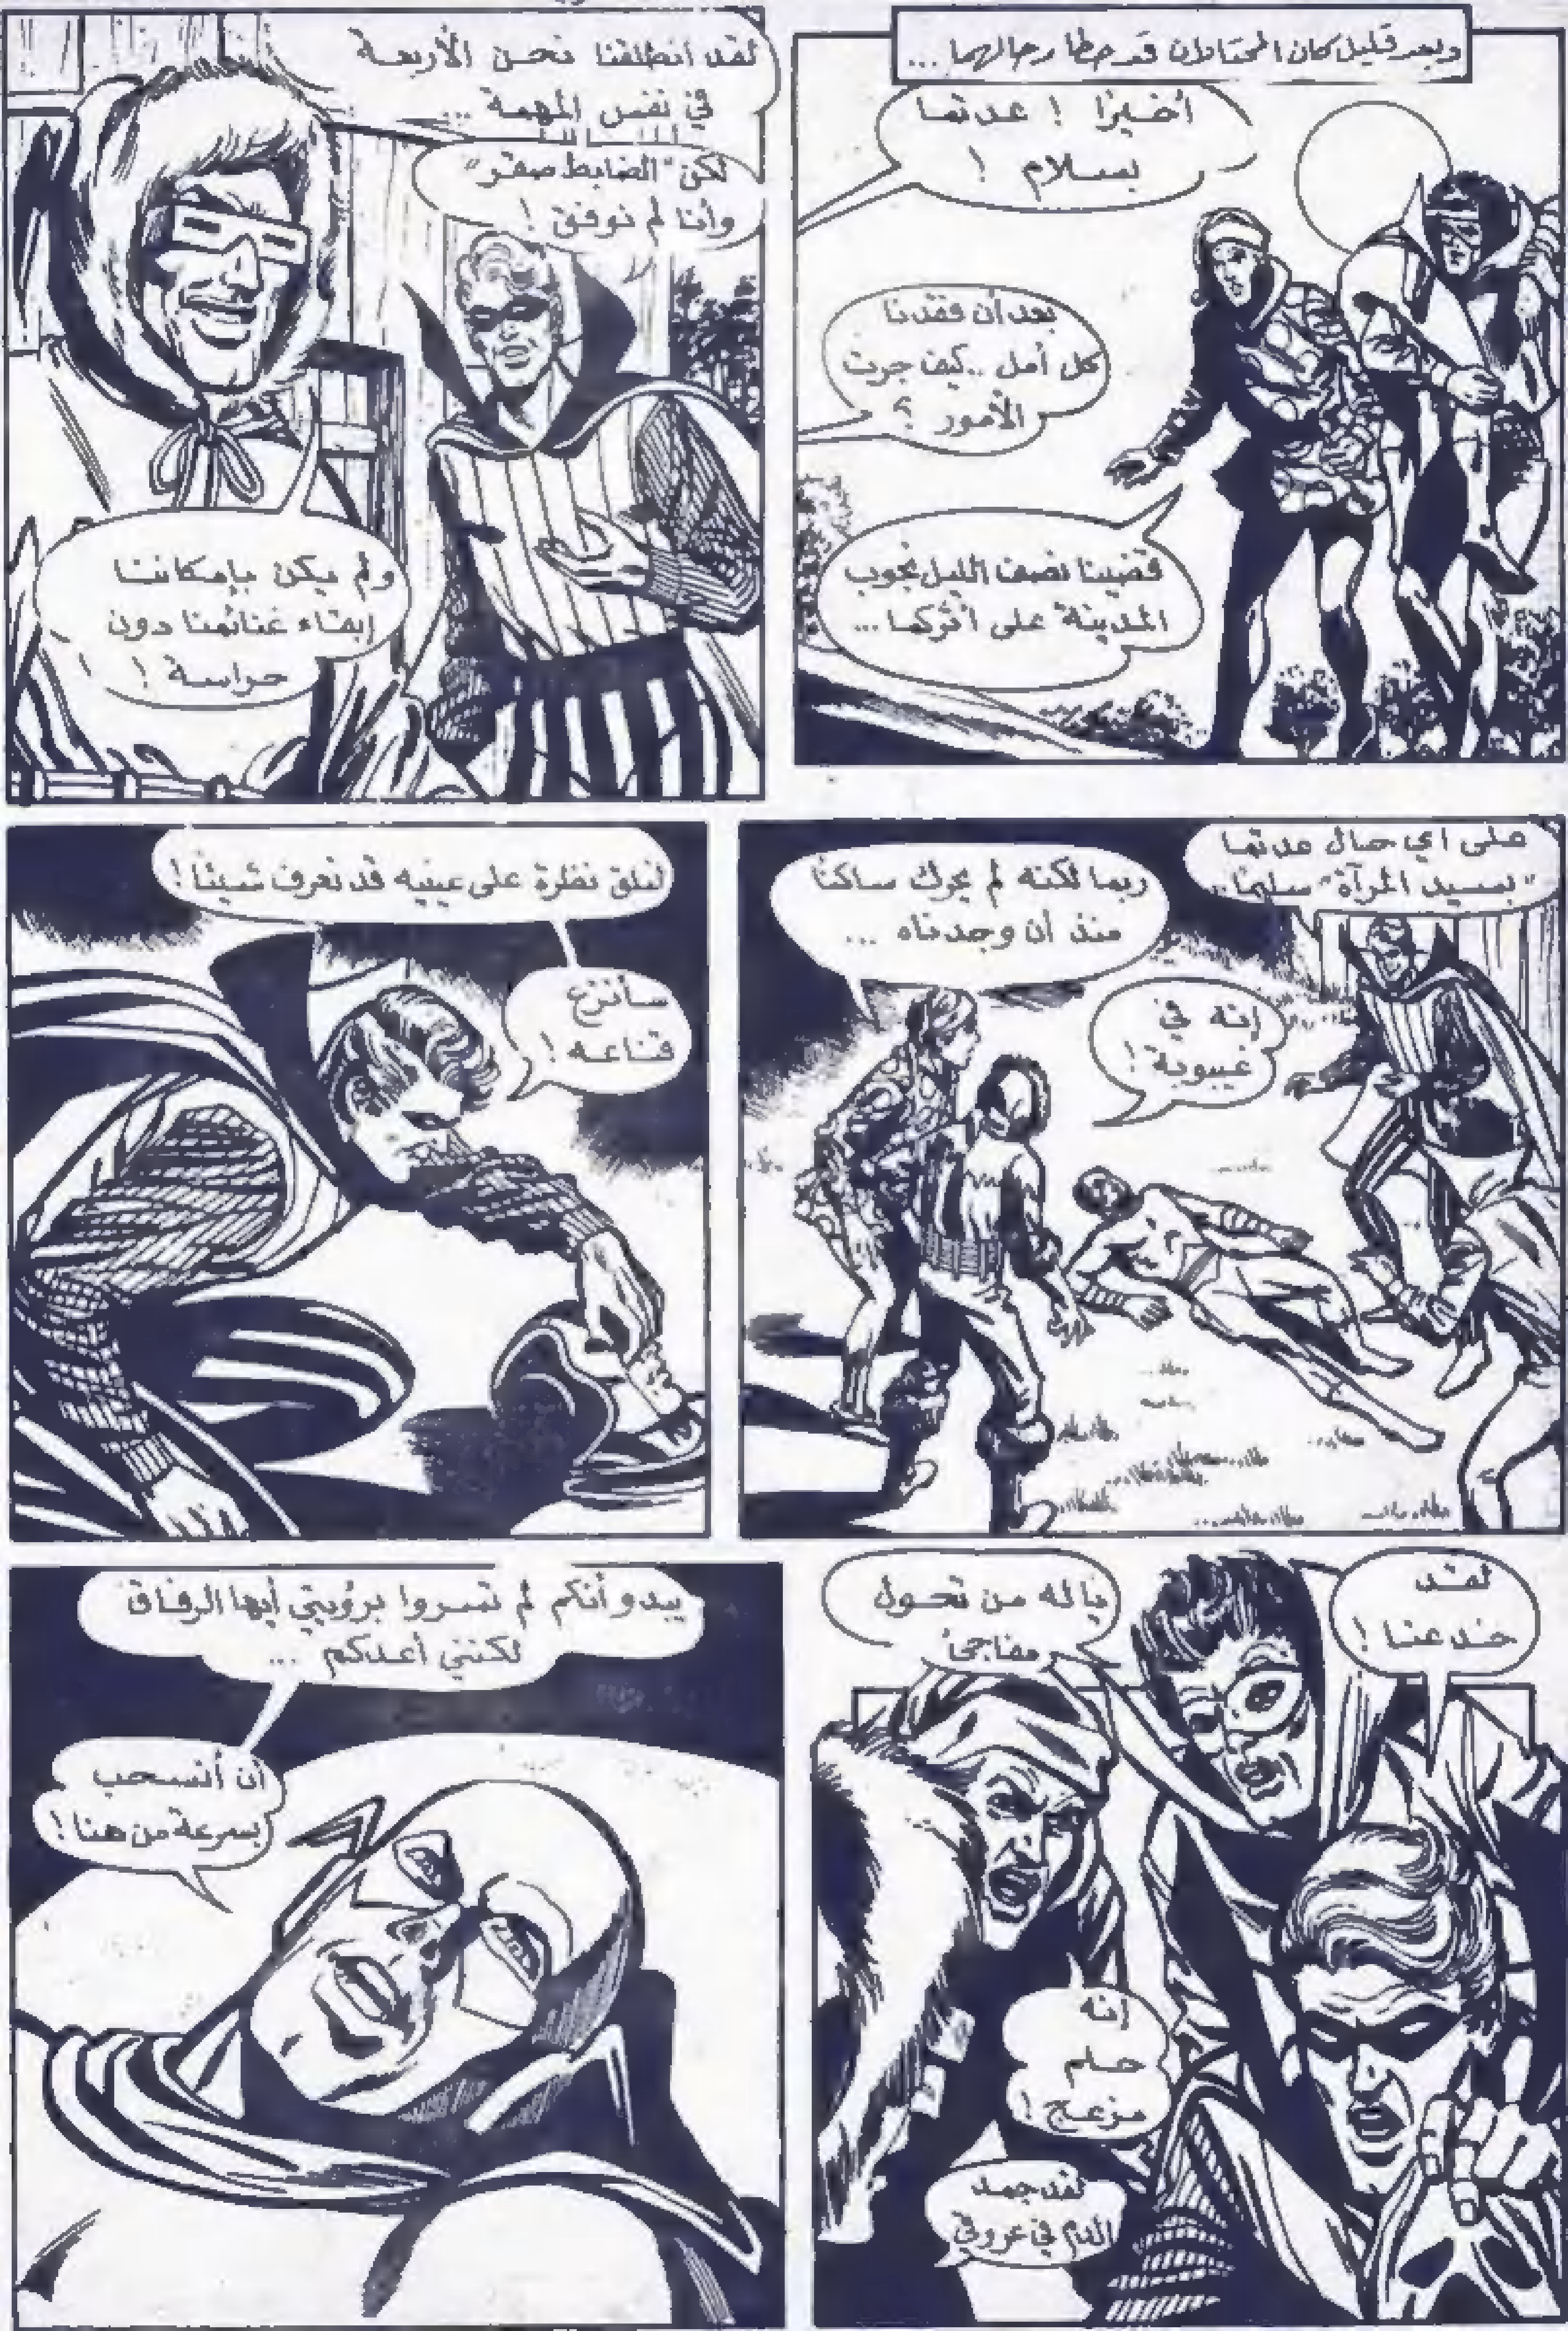 وبعد قليل كان المحتالان قد حطا رحالهما ...
أخيرًا ! عدتما
بسلام !
بعد أن فقدنا
كل أمل .. كيف جرت
الأمور ؟
قضينا نصف الليل نجوب
المدينة على أثركما ...
لقد انطلقنا نحن الأربعة
في نفس المهمة ...
لكن "الضابط صقر"
وأنا لم نوفق !
ولم يكن بإمكاننا
إبقاء غنائمنا دون
حراسة !
على أي حال عدتما
"بسيد المرآة" سليمًا ..
ربما لكنه لم يحرك ساكنًا
منذ أن وجدناه ...
إنه في
غيبوبة !
لنلق نظرة على عينيه قد نعرف شيئًا !
سأنزع
قناعه !
لقد
خدعنا !
ياله من تحول
مفاجئ
إنه
حلم
مزعج !
لقد جمد
الدم في عروقي
يبدو أنكم لم تسروا برؤيتي أيها الرفاق
لكنني أعدكم ...
أن أنسحب
بسرعة من هنا !